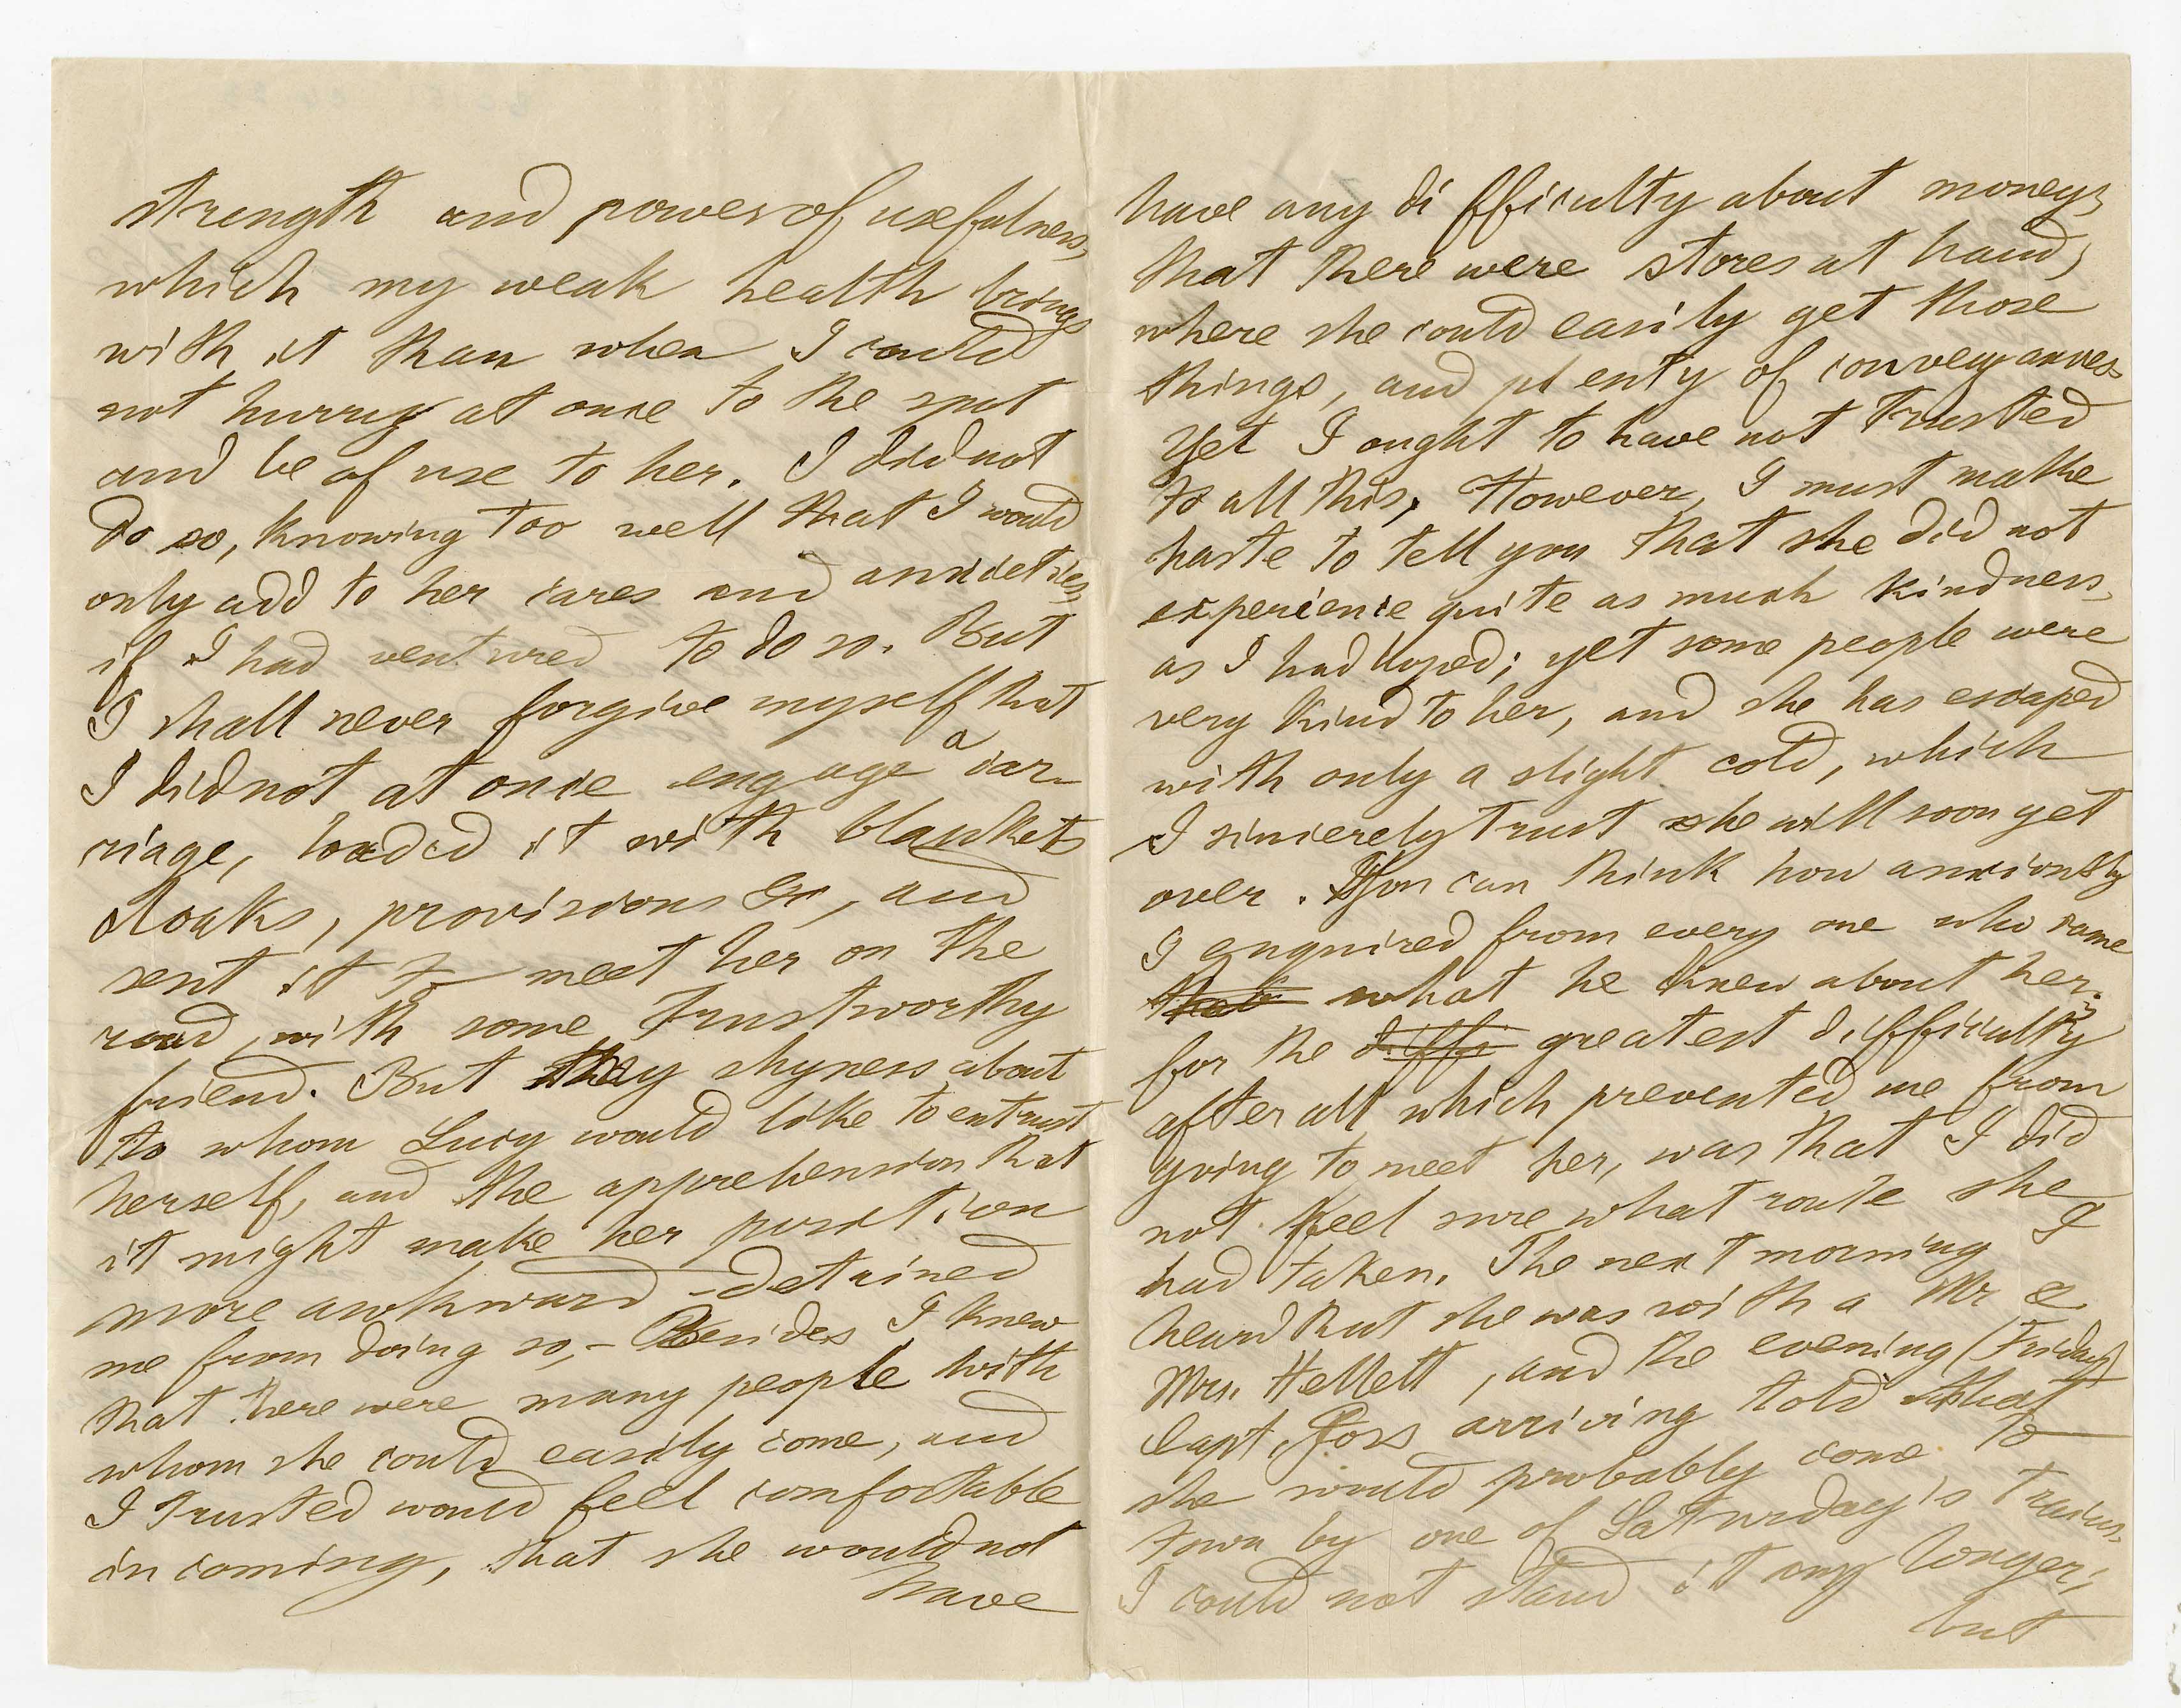 strength and power of usefulness,
which my weak health brings
with it than when I could
not hurry at once to the spot
and be of use to her. I did not
do so, knowing too well that I would
only add to her cares and anxieties,
if I had ventured to do so. But
I shall never forgive myself that
I did not at once engage a car-
riage, loaded it with blankets
cloaks, provisions &c, and
sent it to meet her on the
road, with some trustworthy
friend. But my shyness about
to whom Lucy would like to entrust
herself, and the apprehension that
it might make her position
more awkward - detained
me from doing so, - Besides I knew
that there were many people with
whom she could easily come, and
I trusted would feel comfortable
in coming, that she would not
have
have any difficulty about money,
that there were stores at hand,
where she could easily get those
things, and plenty of conveyances
yet I ought to have not trusted
to all this. However, I must make
haste to tell you that she did not
experience quite as much kindness,
as I had hoped; yet some people were
very kind to her, and she has escaped
with only a slight cold, which
I sincerely trust she will soon get
over. You can think how anxiously
I enquired from every one who came
that what he knew about her;
for the diffi greatest difficulty
after all which prevented me from
going to meet her, was that I did
not feel sure what route she
had taken. The next morning I
heard that she was with a Mr &
Mrs. Hellett, and the evening (Friday)
Capt. Foss arriving told that
she would probably come to
town by one of Saturday's trains.
I could not stand it any longer;
but